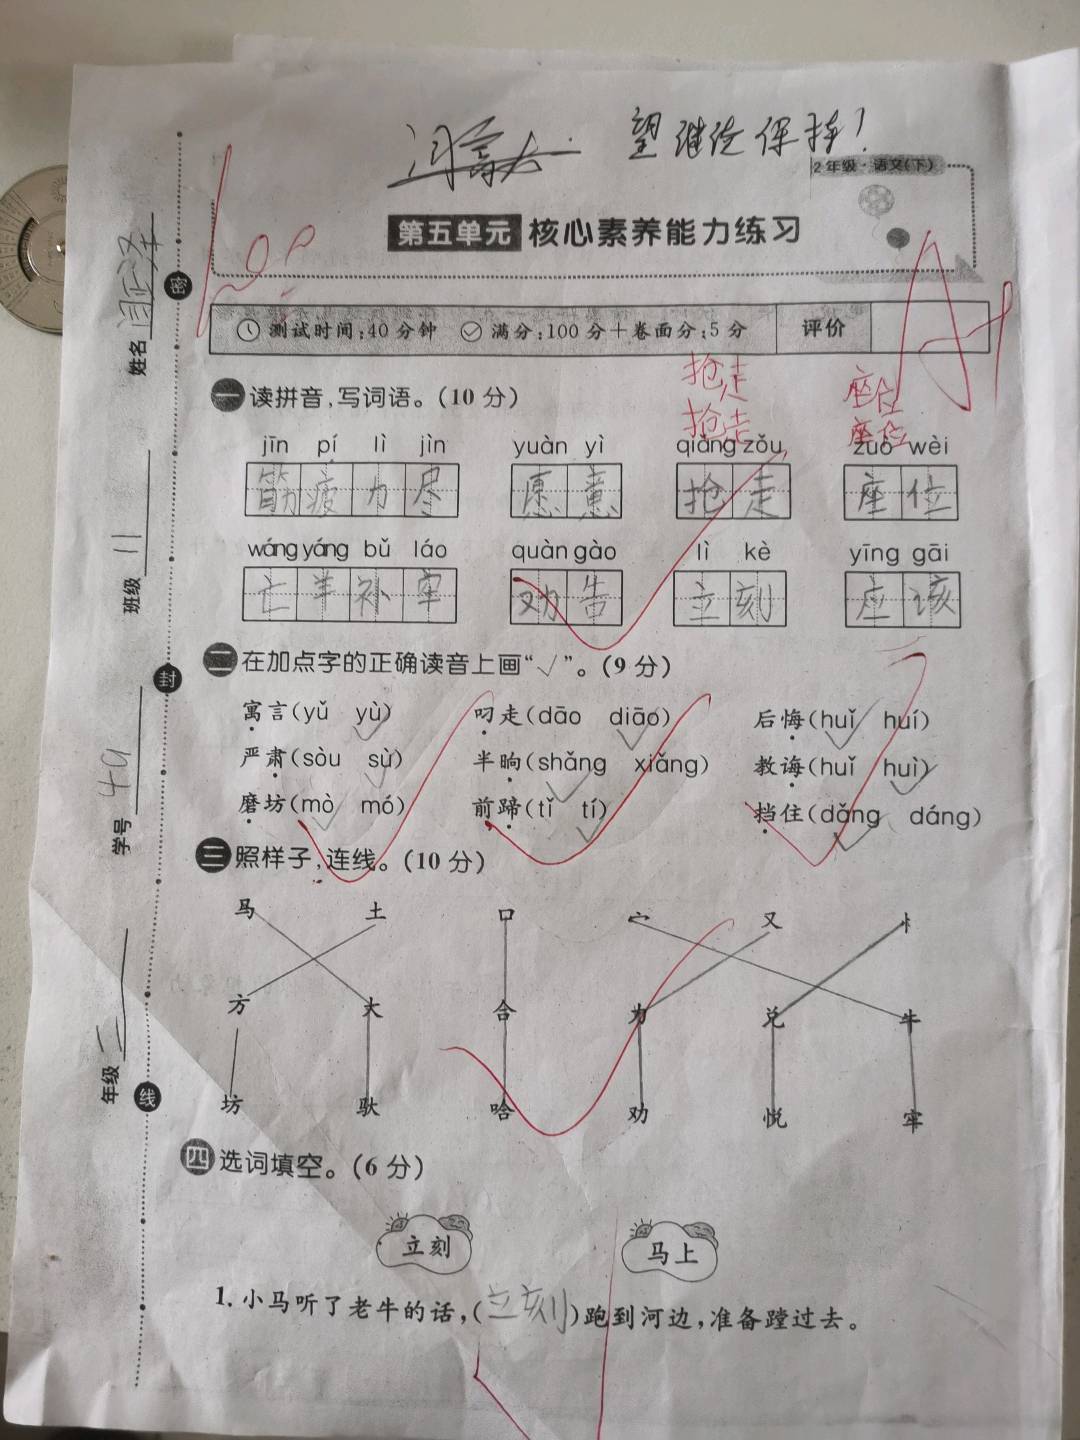 望继续保持!
2年级·语文(下)
第五单元 核心素养能力练习
100
A+
测试时间:40分钟 满分:100分+卷面分:5分 评价
抢走 座位
抢走 座位
一 读拼音,写词语。(10分)
jīn pí lì jìn yuàn yì qiǎng zǒu zuò wèi
筋疲力尽 愿意 抢走 座位
wáng yáng bǔ láo quàn gào lì kè yīng gāi
亡羊补牢 劝告 立刻 应该
二 在加点字的正确读音上画“√”。(9分)
寓言(yǔ yù) 叼走(dāo diāo) 后悔(huǐ huí)
严肃(sòu sù) 半晌(shǎng xiǎng) 教诲(huǐ huì)
磨坊(mò mó) 前蹄(tǐ tí) 挡住(dǎng dáng)
三 照样子,连线。(10分)
马 土 口 宀 又 忄
方 大 合 力 兑 牛
坊 驮 哈 劝 悦 牢
四 选词填空。(6分)
立刻 马上
1. 小马听了老牛的话,(立刻)跑到河边,准备蹚过去。
密
封
线
姓名
班级 11
学号 49
年级 二